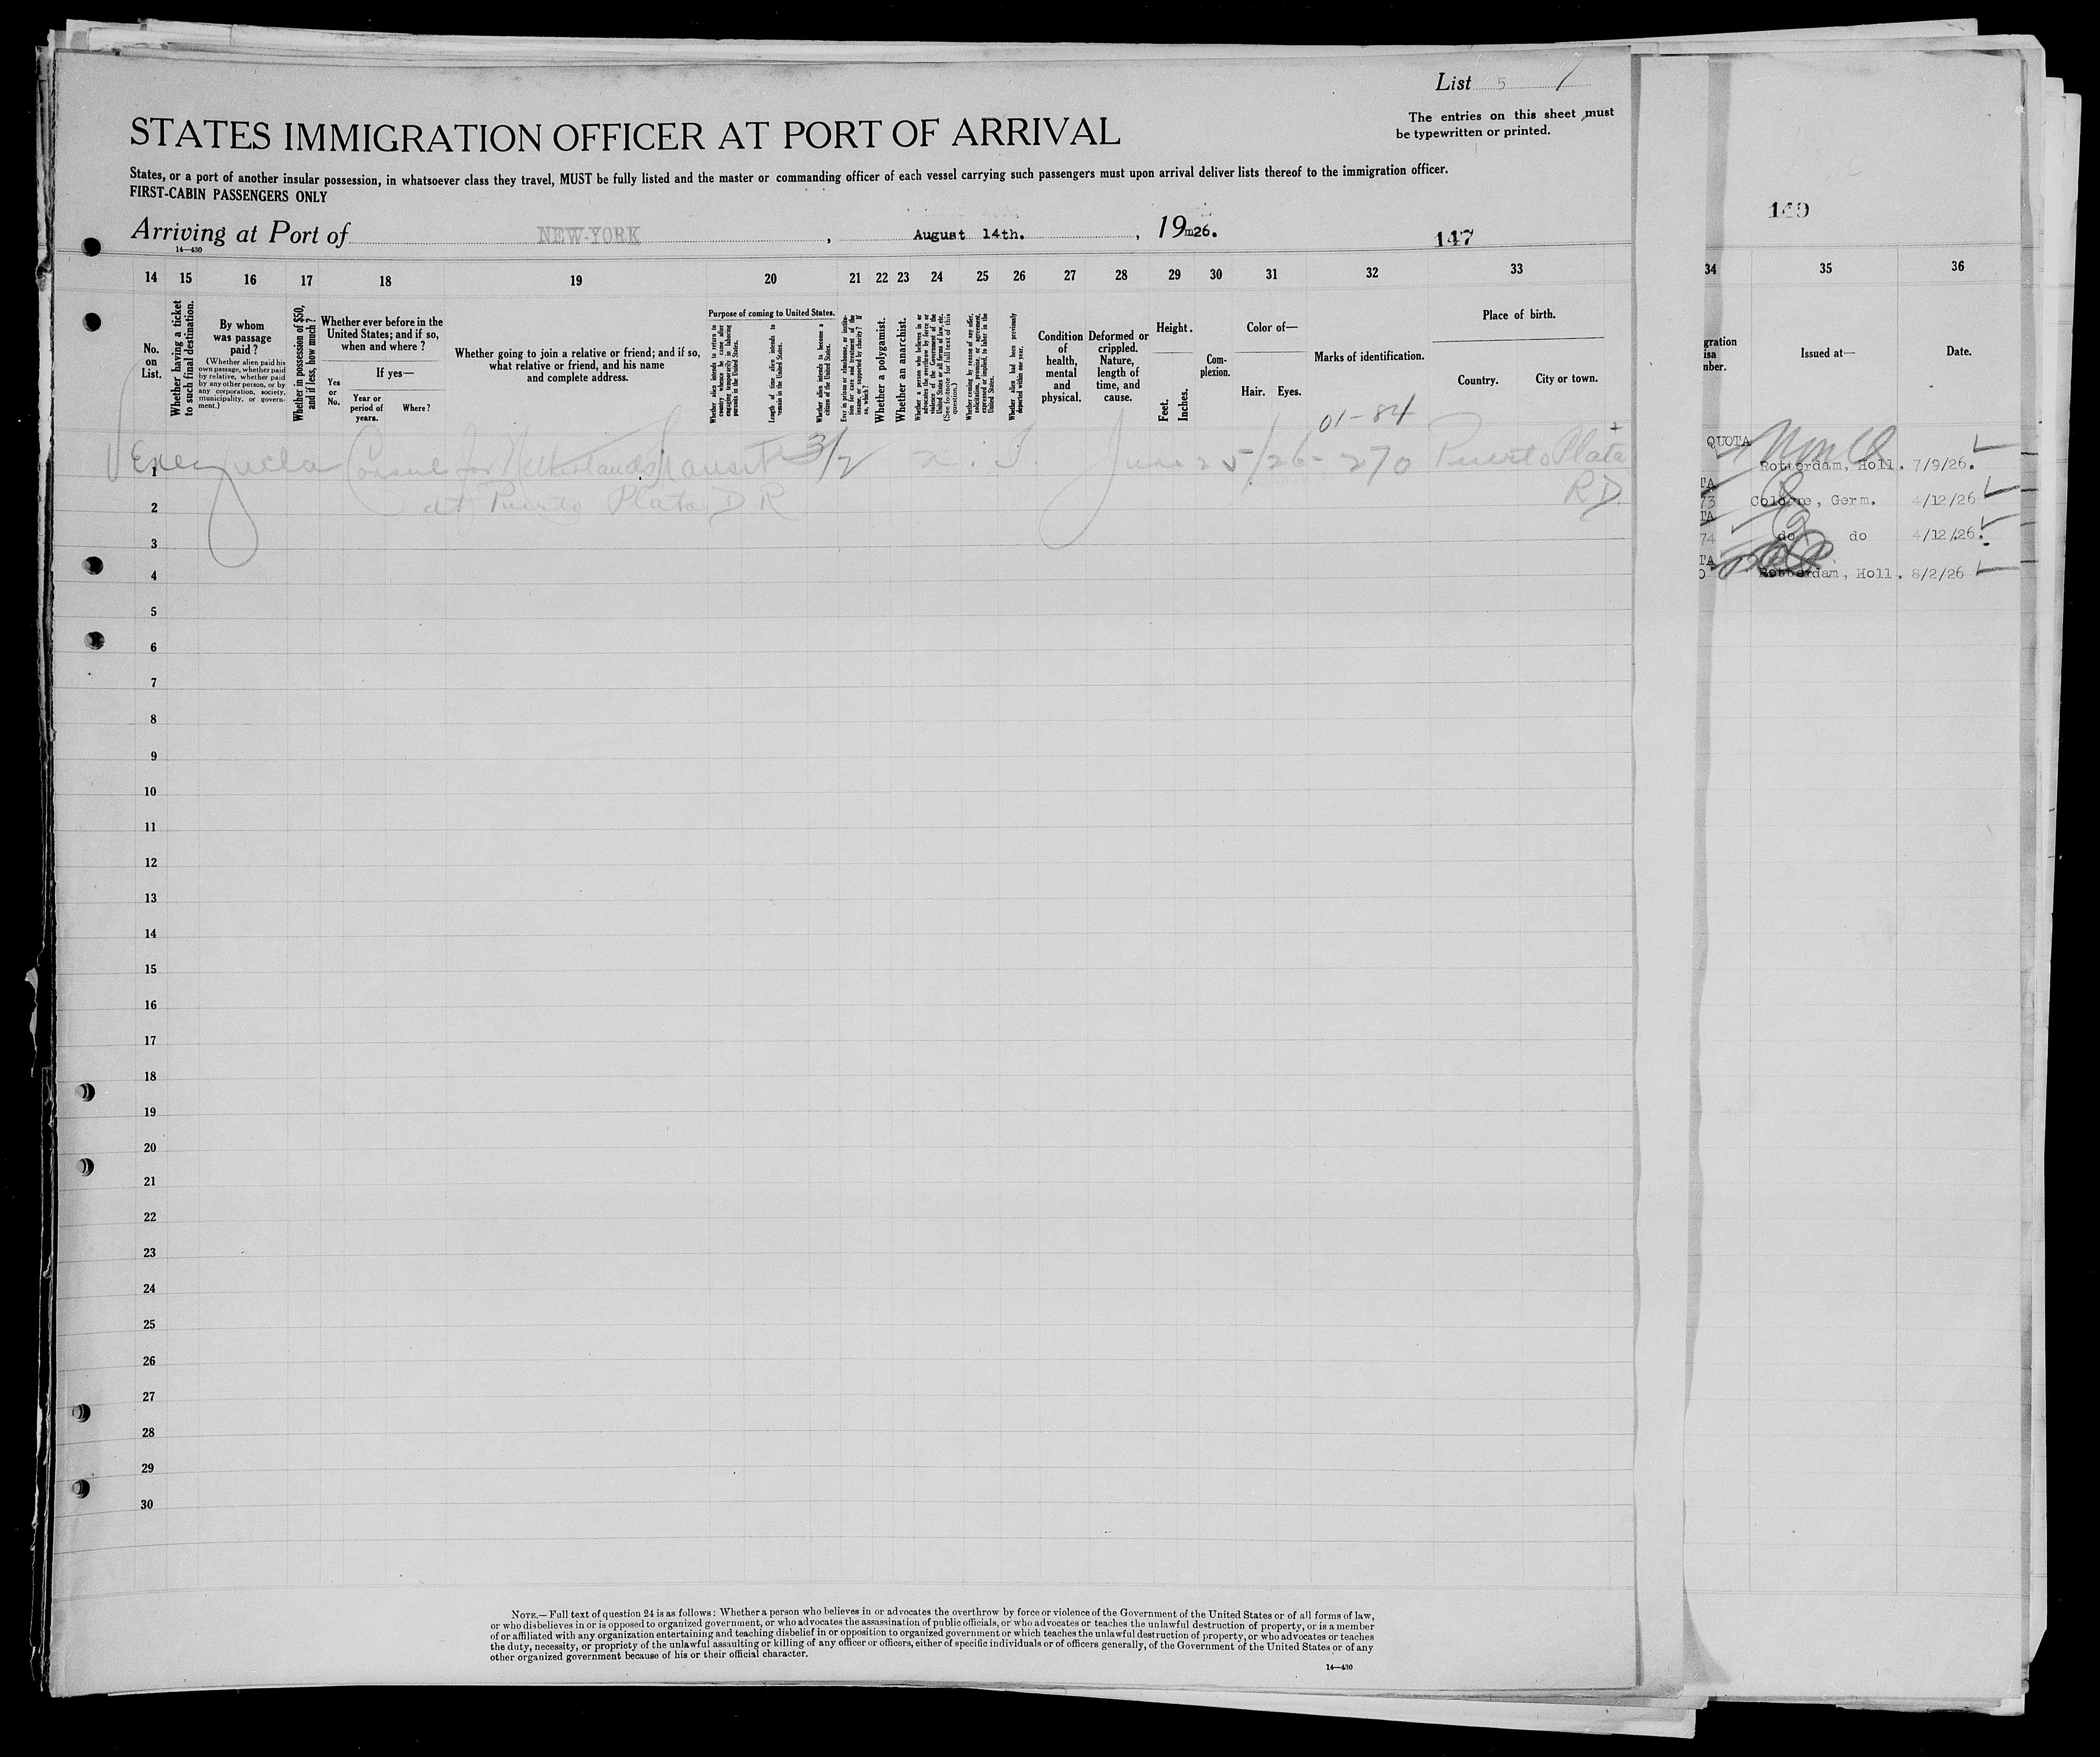 List 5 1
The entries on this sheet must
be typewritten or printed.
STATES IMMIGRATION OFFICER AT PORT OF ARRIVAL
States, or a port of another insular possession, in whatsoever class they travel, MUST be fully listed and the master or commanding officer of each vessel carrying such passengers must upon arrival deliver lists thereof to the immigration officer.
FIRST-CABIN PASSENGERS ONLY
Arriving at Port of NEW-YORK , August 14th. , 19m26.
14—430
147
14 15 16 17 18 19 20 21 22 23 24 25 26 27 28 29 30 31 32 33
No. on List.
Whether having a ticket to such final destination.
By whom was passage paid?
(Whether alien paid his own passage, whether paid by relative, whether paid by any other person, or by any corporation, society, municipality, or government.)
Whether in possession of $50, and if less, how much?
Whether ever before in the United States; and if so, when and where?
Yes or No.
If yes—
Year or period of years.
Where?
Whether going to join a relative or friend; and if so, what relative or friend, and his name and complete address.
Purpose of coming to United States.
Whether alien intends to return to country whence he came after engaging temporarily in laboring pursuits in the United States.
Length of time alien intends to remain in the United States.
Whether alien intends to become a citizen of the United States.
Ever in prison or almshouse, or institution for care and treatment of the insane, or supported by charity? If so, which?
Whether a polygamist.
Whether an anarchist.
Whether a person who believes in or advocates the overthrow by force or violence of the Government of the United States or all forms of law, etc. (See footnote for full text of this question.)
Whether coming by reason of any offer, solicitation, promise, or agreement, expressed or implied, to labor in the United States.
Whether alien had been previously deported within one year.
Condition of health, mental and physical.
Deformed or crippled. Nature, length of time, and cause.
Height.
Feet. Inches.
Complexion.
Color of—
Hair. Eyes.
Marks of identification.
Place of birth.
Country. City or town.
01-84
Venezuela Consul for Netherlands Transit 3/2 June 25/26- 270 Puerto Plata
at Puerto Plata D R R D
1
2
3
4
5
6
7
8
9
10
11
12
13
14
15
16
17
18
19
20
21
22
23
24
25
26
27
28
29
30
NOTE.—Full text of question 24 is as follows: Whether a person who believes in or advocates the overthrow by force or violence of the Government of the United States or of all forms of law,
or who disbelieves in or is opposed to organized government, or who advocates the assassination of public officials, or who advocates or teaches the unlawful destruction of property, or is a member
of or affiliated with any organization entertaining and teaching disbelief in or opposition to organized government or which teaches the unlawful destruction of property, or who advocates or teaches
the duty, necessity, or propriety of the unlawful assaulting or killing of any officer or officers, either of specific individuals or of officers generally, of the Government of the United States or of any
other organized government because of his or their official character.
14—430
34 35 36
gration
isa
nber.
Issued at—
Date.
QUOTA
Rotterdam, Holl. 7/9/26.
TA
73 Cologne, Germ. 4/12/26
TA
74 do do 4/12/26.
TA
O Rotterdam, Holl. 8/2/26